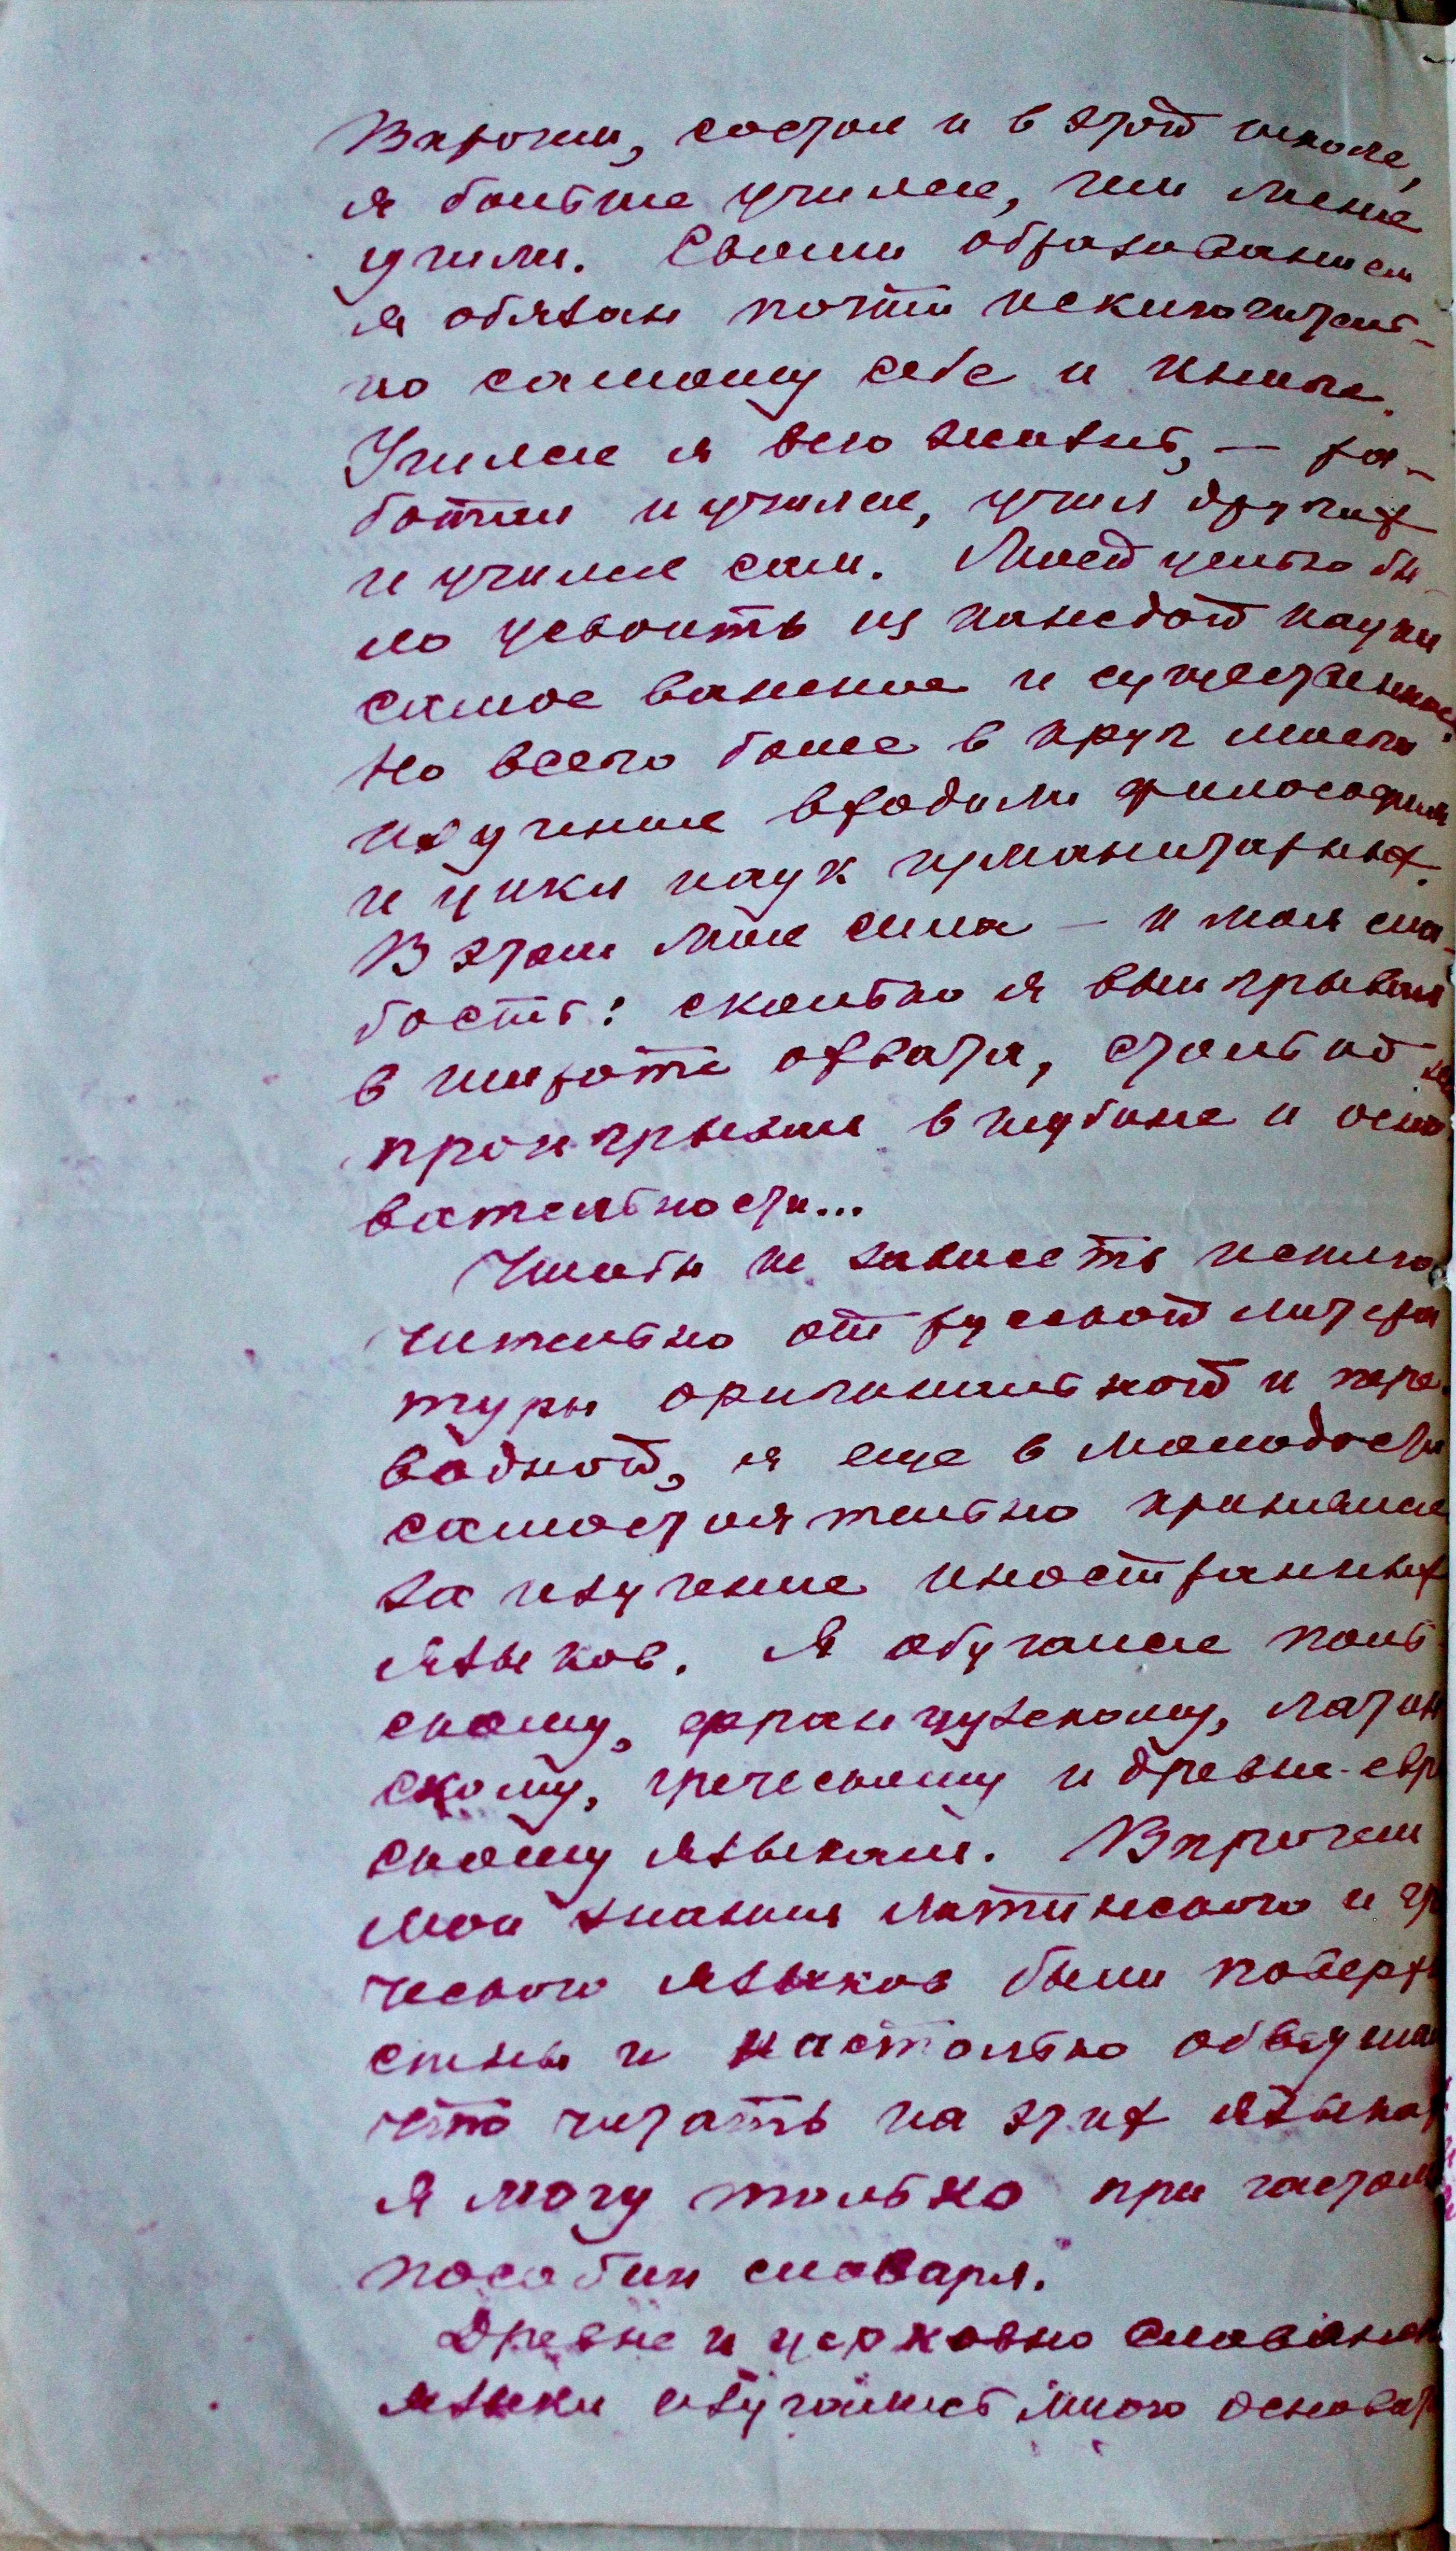 Впрочем, состоя и в этой школе,
я больше учился, чем меня
учили. Своим образованием
я обязан почти исключитель-
но самому себе и книге.
Учился я всю жизнь, — ра-
ботал и учился, учил других
и учился сам. Моей целью бы-
ло усвоить из каждой науки
самое важное и существенное.
Но всего более в круг моего
изучения входили философия
и цикл наук гуманитарных.
В этом моя сила — и моя сла-
бость: сколько я выигрывал
в широте охвата, столько
проигрывал в глубине и осно
вательности...
Чтобы не зависеть исклю
чительно от русской литера
туры оригинальной и пере
водной, я еще в молодости
самостоятельно принялся
за изучение иностранных
языков. Я обучался поль
скому, французскому, латин
скому, греческому и древне-евр
скому языкам. Впрочем
мои знания латинского и гр
ческого языков были поверхн
стны и настолько
что читать на этих языках
я могу только при частом
пособии словаря.
Древне и церковно славянск
языки изучались много основат